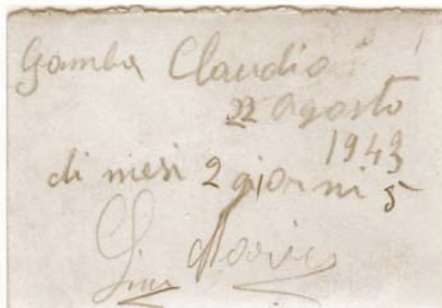 Gamba Claudio
22 Agosto
1943
di mesi 2 giorni 5